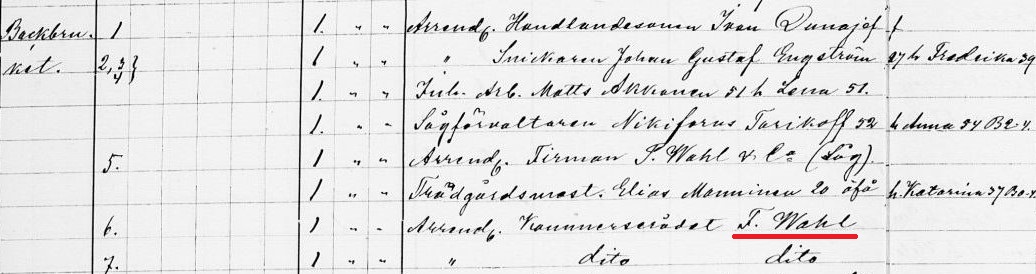 Backbru. 1 1. " " Arrend. Handlandesonen Ivan Dunajef f
kat. 2, 3, 4} 1 " " " Snickaren Johan Gustaf Engström 27 h Fredrika 39
1. " " Inh. Arb. Matts Akkanen 51 h Lena 51.
1. " " Sågförvaltaren Nikiforus Tarikoff 52 h Anna 54 B2-4
5. 1 " " Arrend. Firman P. Wahl & Co (Såg).
1 " " Trädgårdsmäst. Elias Manninen 20 öfå h. Katarina 37 B0-4
6. 1 " " Arrend. Kommerserådet F. Wahl
7. 1 " " " dito dito